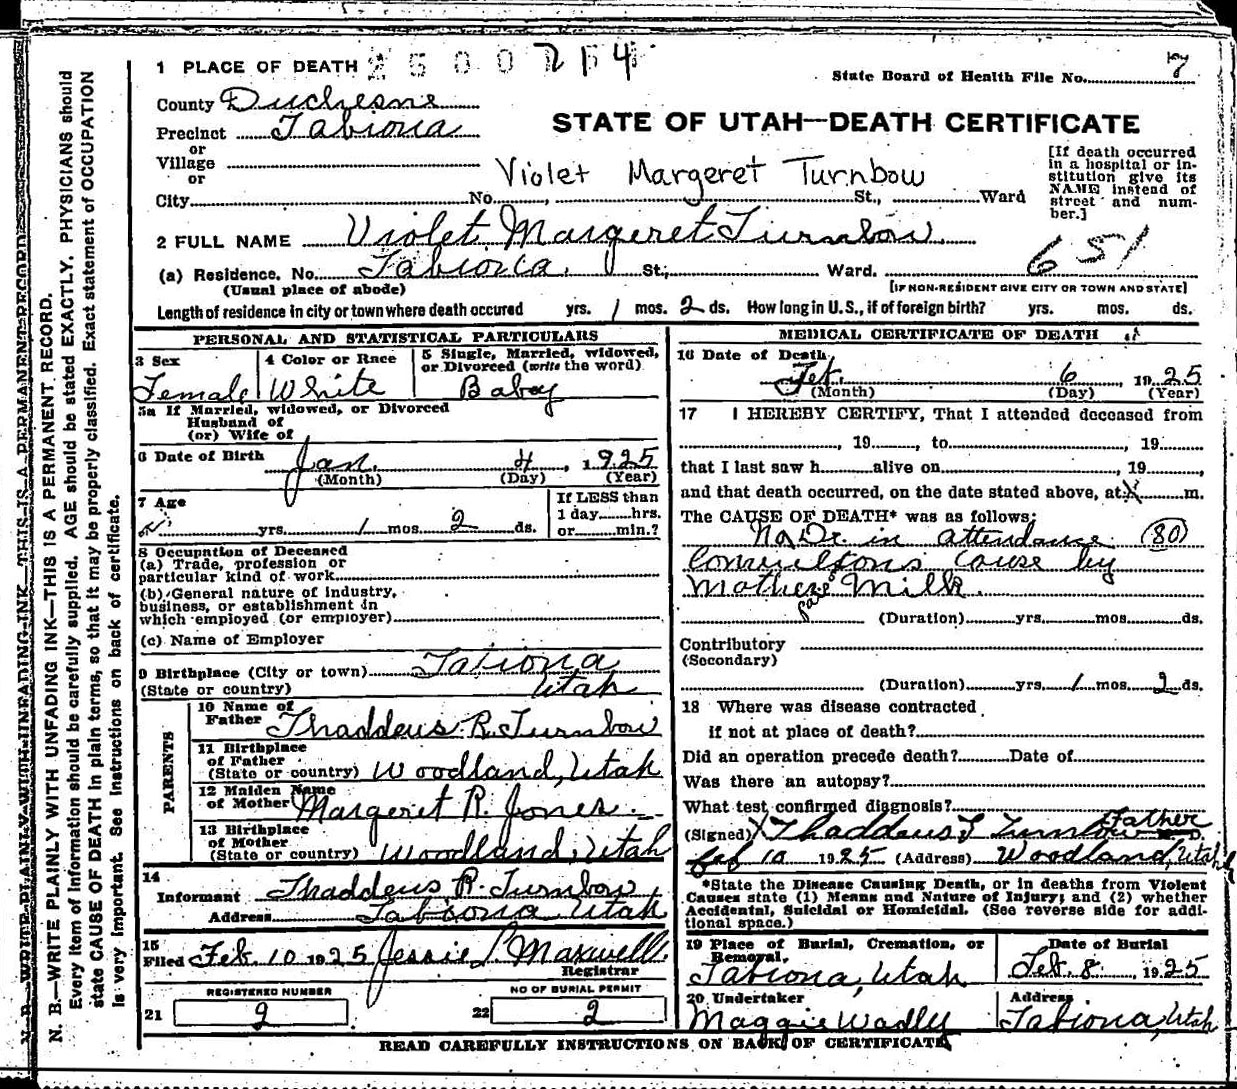 1 PLACE OF DEATH 2500714
State Board of Health File No. 7
County Duchesne
Precinct Tabiona
or
Village
or
City No. St., Ward
STATE OF UTAH—DEATH CERTIFICATE
Violet Margeret Turnbow
[If death occurred
in a hospital or in-
stitution give its
NAME instead of
street and num-
ber.]
2 FULL NAME Violet Margeret Turnbow
651
(a) Residence. No. Tabiona St., Ward.
(Usual place of abode) [IF NON-RESIDENT GIVE CITY OR TOWN AND STATE]
Length of residence in city or town where death occured yrs. 1 mos. 2 ds. How long in U.S., if of foreign birth? yrs. mos. ds.
PERSONAL AND STATISTICAL PARTICULARS
3 Sex
Female
4 Color or Race
White
5 Single, Married, widowed,
or Divorced (write the word)
Baby
5a If Married, widowed, or Divorced
Husband of
(or) Wife of
6 Date of Birth Jan. 4, 1925
(Month) (Day) (Year)
7 Age
yrs. 1 mos. 2 ds.
If LESS than
1 day hrs.
or min.?
8 Occupation of Deceased
(a) Trade, profession or
particular kind of work
(b) General nature of industry,
business, or establishment in
which employed (or employer)
(c) Name of Employer
9 Birthplace (City or town) Tabiona
(State or country) Utah
PARENTS
10 Name of
Father Thaddeus R. Turnbow
11 Birthplace
of Father
(State or country) Woodland, Utah
12 Maiden Name
of Mother Margeret R. Jones
13 Birthplace
of Mother
(State or country) Woodland, Utah
14
Informant Thaddeus R. Turnbow
Address Tabiona Utah
15
Filed Feb. 10 1925 Jessie L. Maxwell
Registrar
REGISTERED NUMBER
21 2
NO OF BURIAL PERMIT
22 2
MEDICAL CERTIFICATE OF DEATH
16 Date of Death
Feb. 6, 1925
(Month) (Day) (Year)
17 I HEREBY CERTIFY, That I attended deceased from
, 19 , to , 19
that I last saw h alive on , 19 ,
and that death occurred, on the date stated above, at m.
The CAUSE OF DEATH* was as follows:
No Dr. in attendance (80)
Convultons cause by
Mothers Milk.
(Duration) yrs. mos. ds.
Contributory
(Secondary)
(Duration) yrs. 1 mos. 2 ds.
18 Where was disease contracted
if not at place of death?
Did an operation precede death? Date of
Was there an autopsy?
What test confirmed diagnosis?
Father
(Signed) X Thaddeus T Turnbow D.
feb 10 1925 (Address) Woodland, Utah
*State the Disease Causing Death, or in deaths from Violent
Causes state (1) Means and Nature of Injury; and (2) whether
Accidental, Suicidal or Homicidal. (See reverse side for addi-
tional space.)
19 Place of Burial, Cremation, or
Removal,
Tabiona, Utah
Date of Burial
Feb. 8, 1925
20 Undertaker
Maggie Wadley
Address
Tabiona, Utah
READ CAREFULLY INSTRUCTIONS ON BACK OF CERTIFICATE
N. B.—WRITE PLAINLY WITH UNFADING INK—THIS IS A PERMANENT RECORD.
Every item of information should be carefully supplied. AGE should be stated EXACTLY. PHYSICIANS should
state CAUSE OF DEATH in plain terms, so that it may be properly classified. Exact statement of OCCUPATION
is very important. See instructions on back of certificate.
N. B.—WRITE PLAINLY WITH UNFADING INK—THIS IS A PERMANENT RECORD